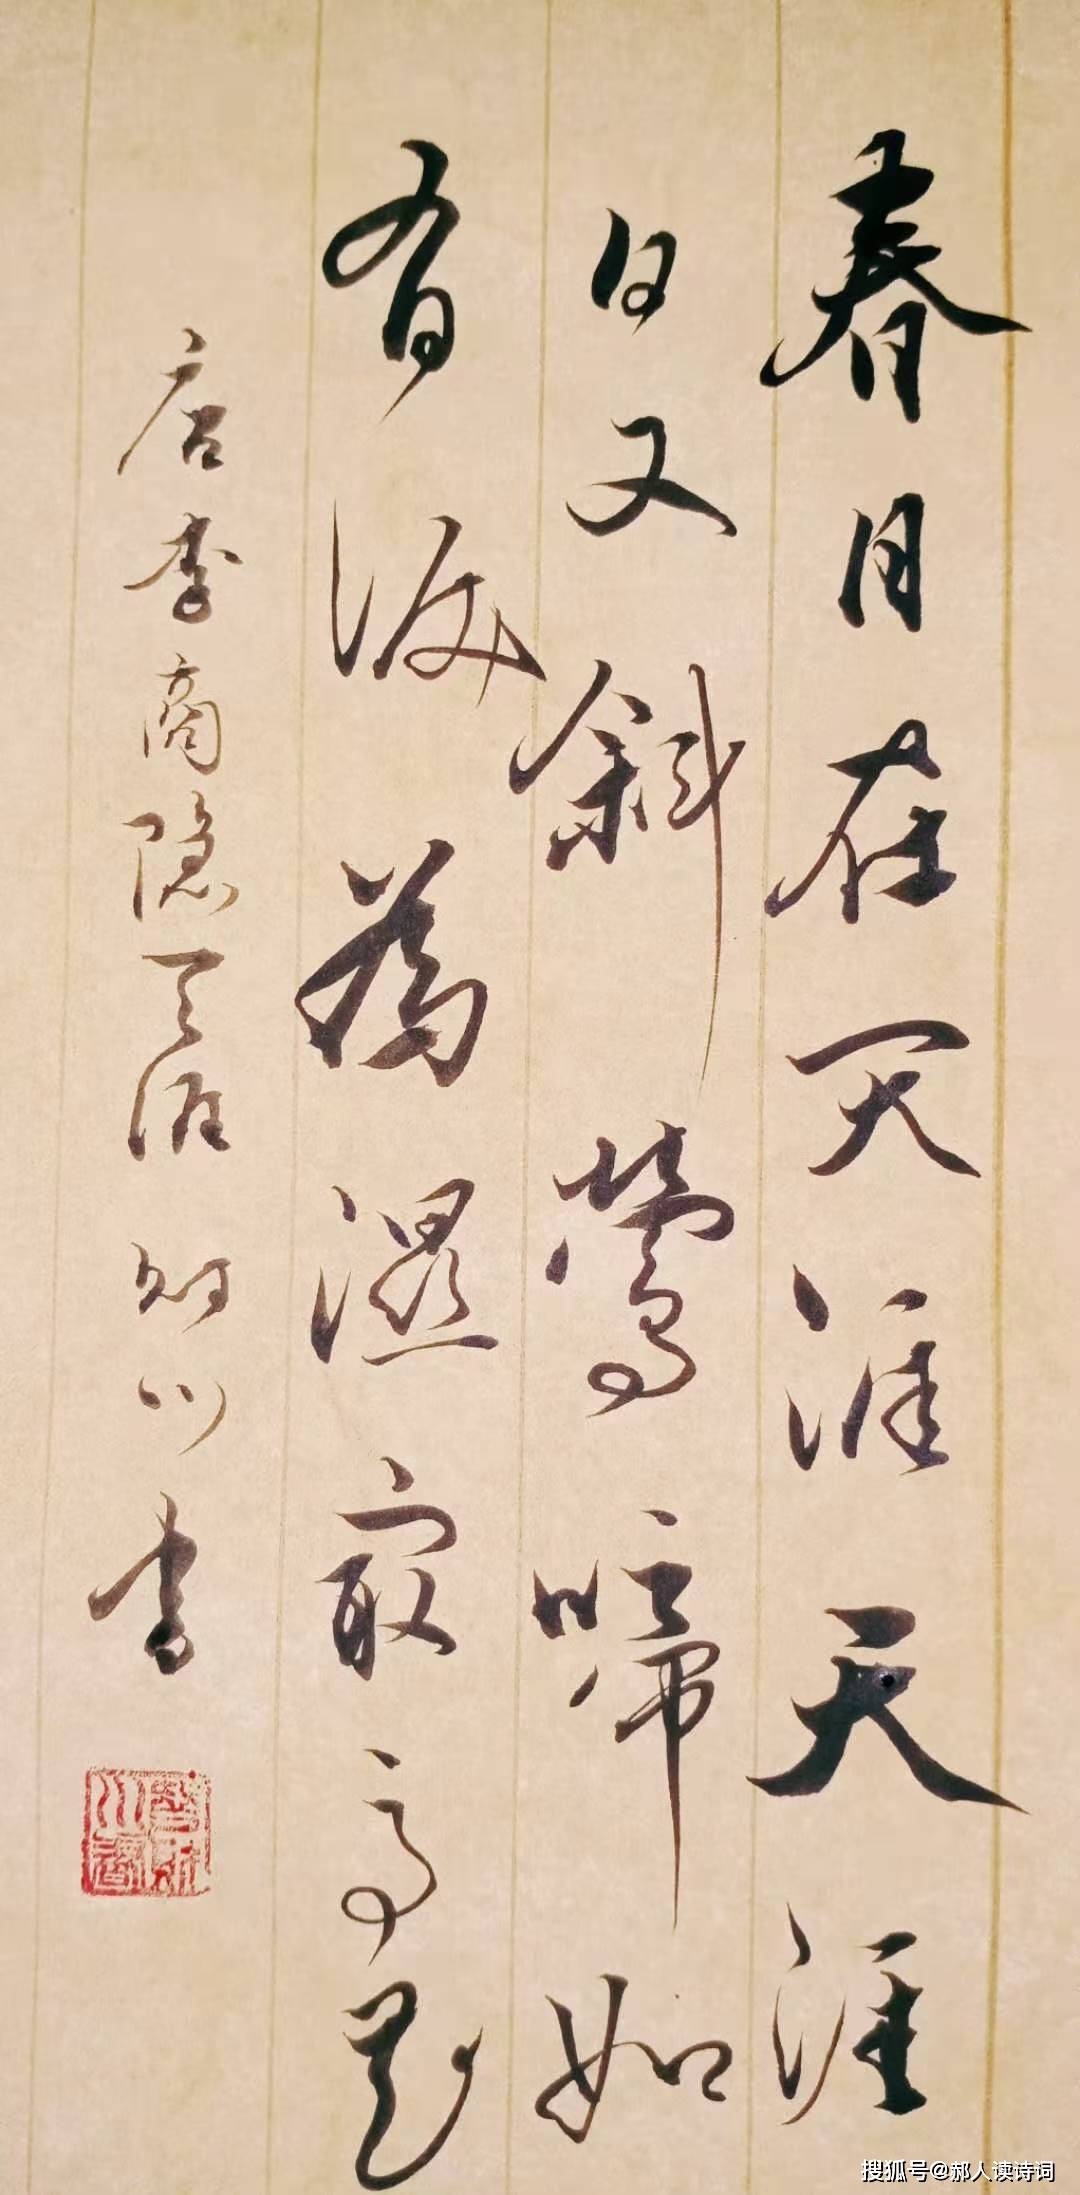 春日在天涯天涯
日又斜鶯啼如
有淚為濕最高花
唐李商隐天涯川書
搜狐号@郝人读诗词